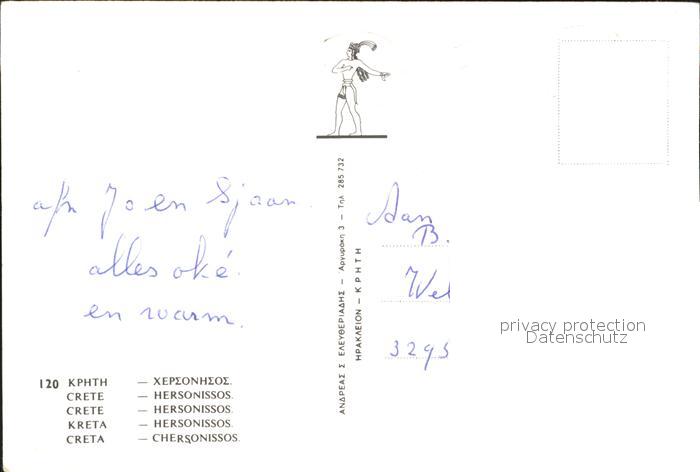 afz Jo en Sjaan.
alles oké.
en warm.
120 ΚΡΗΤΗ — ΧΕΡΣΟΝΗΣΟΣ.
CRETE — HERSONISSOS.
CRETE — HERSONISSOS.
KRETA — HERSONISSOS.
CRETA — CHERSONISSOS.
ΑΝΔΡΕΑΣ Σ ΕΛΕΥΘΕΡΙΑΔΗΣ — Ἀργυράκη 3 — Τηλ 285 732
ΗΡΑΚΛΕΙΟΝ — ΚΡΗΤΗ
Aan
B.
Wel
3295
privacy protection
Datenschutz